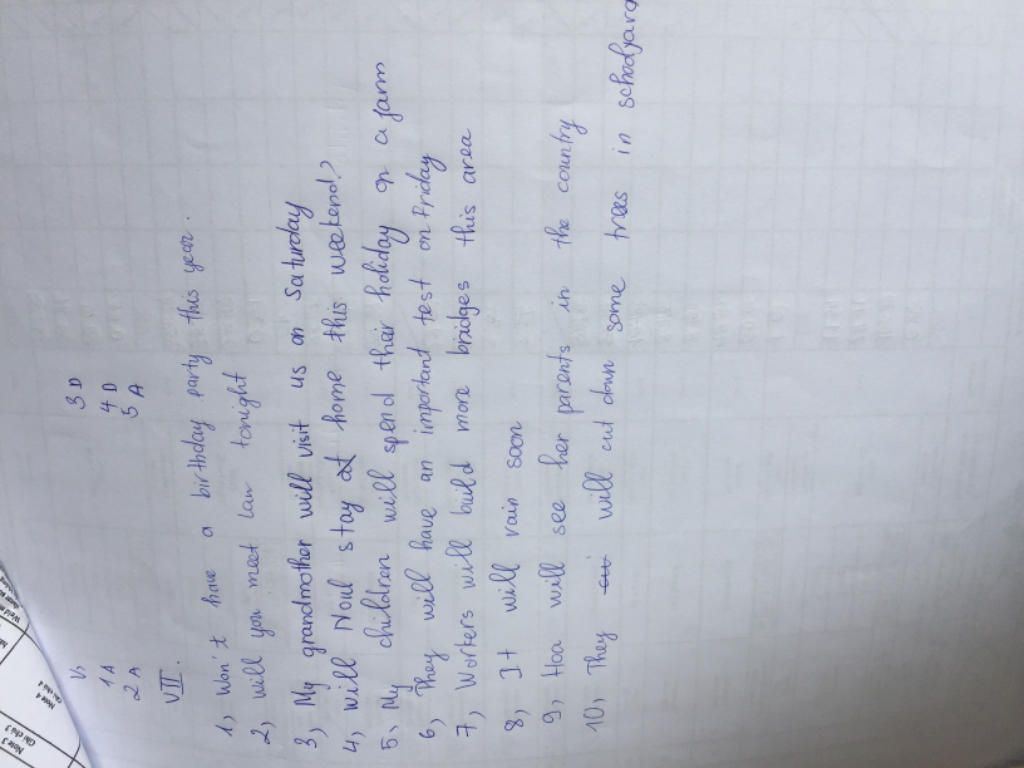 V,
1A 3D
2A 4D
5A
VII.
1, Won't have a birthday party this year.
2, will you meet Lan tonight
3, My grandmother will visit us on Saturday
4, will you stay at home this weekend?
5, My children will spend their holiday on a farm
6, They will have an important test on Friday
7, Workers will build more bridges this area
8, It will rain soon
9, Hoa will see her parents in the country
10, They will cut down some trees in schoolyard
Note 4
Ghi chú 4
Note 3
Ghi chú 3